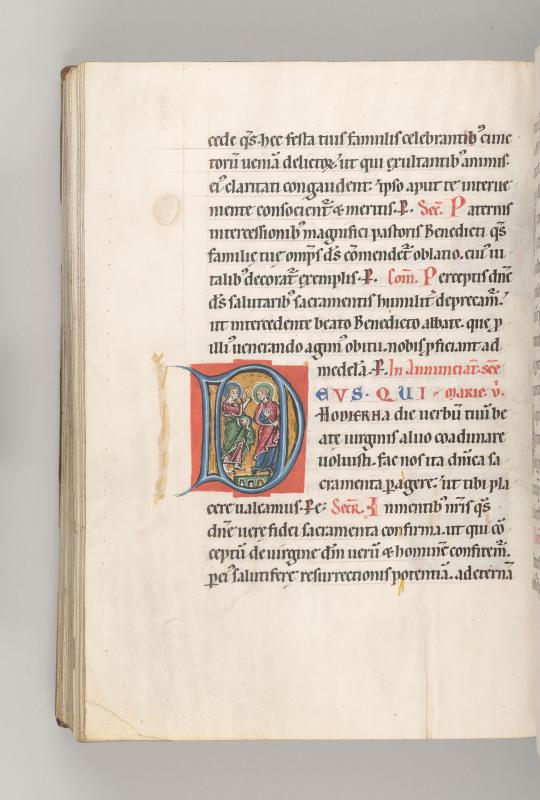 cede qs. hec festa tuis famulis celebrantib' cunc
toru uenia delictoꝝ. ut qui exultantib' animis.
ei' claritati congaudent. ipso aput te interue
niente consocient & meritis. P. Secr. Paternis
intercessionib' magnifici pastoris Benedicti qs
familie tue omps ds comendet oblatio. cui' ui
talib' decorat exemplis. P. Com. Perceptis dne
ds salutarib' sacramentis humilit deprecam.
ut intercedente beato Benedicto abbate. que p
illi' uenerando agim' obitu. nobis pficiant ad
medela. P. In Annunciat. sce
DEVS. QUI. Marie. V.
HODIERNA die uerbu tuu be
ate uirginis aluo coadunare
uoluisti. fac nos ita dnica sa
cramenta pagere. ut tibi pla
cere ualeamus. Pe: Secr. In mentib' nris qs
dne uere fidei sacramenta confirma. ut qui co
ceptu de uirgine dm ueru & homine confitem.
p ei' salutifere resurrectionis potentia. ad eterna